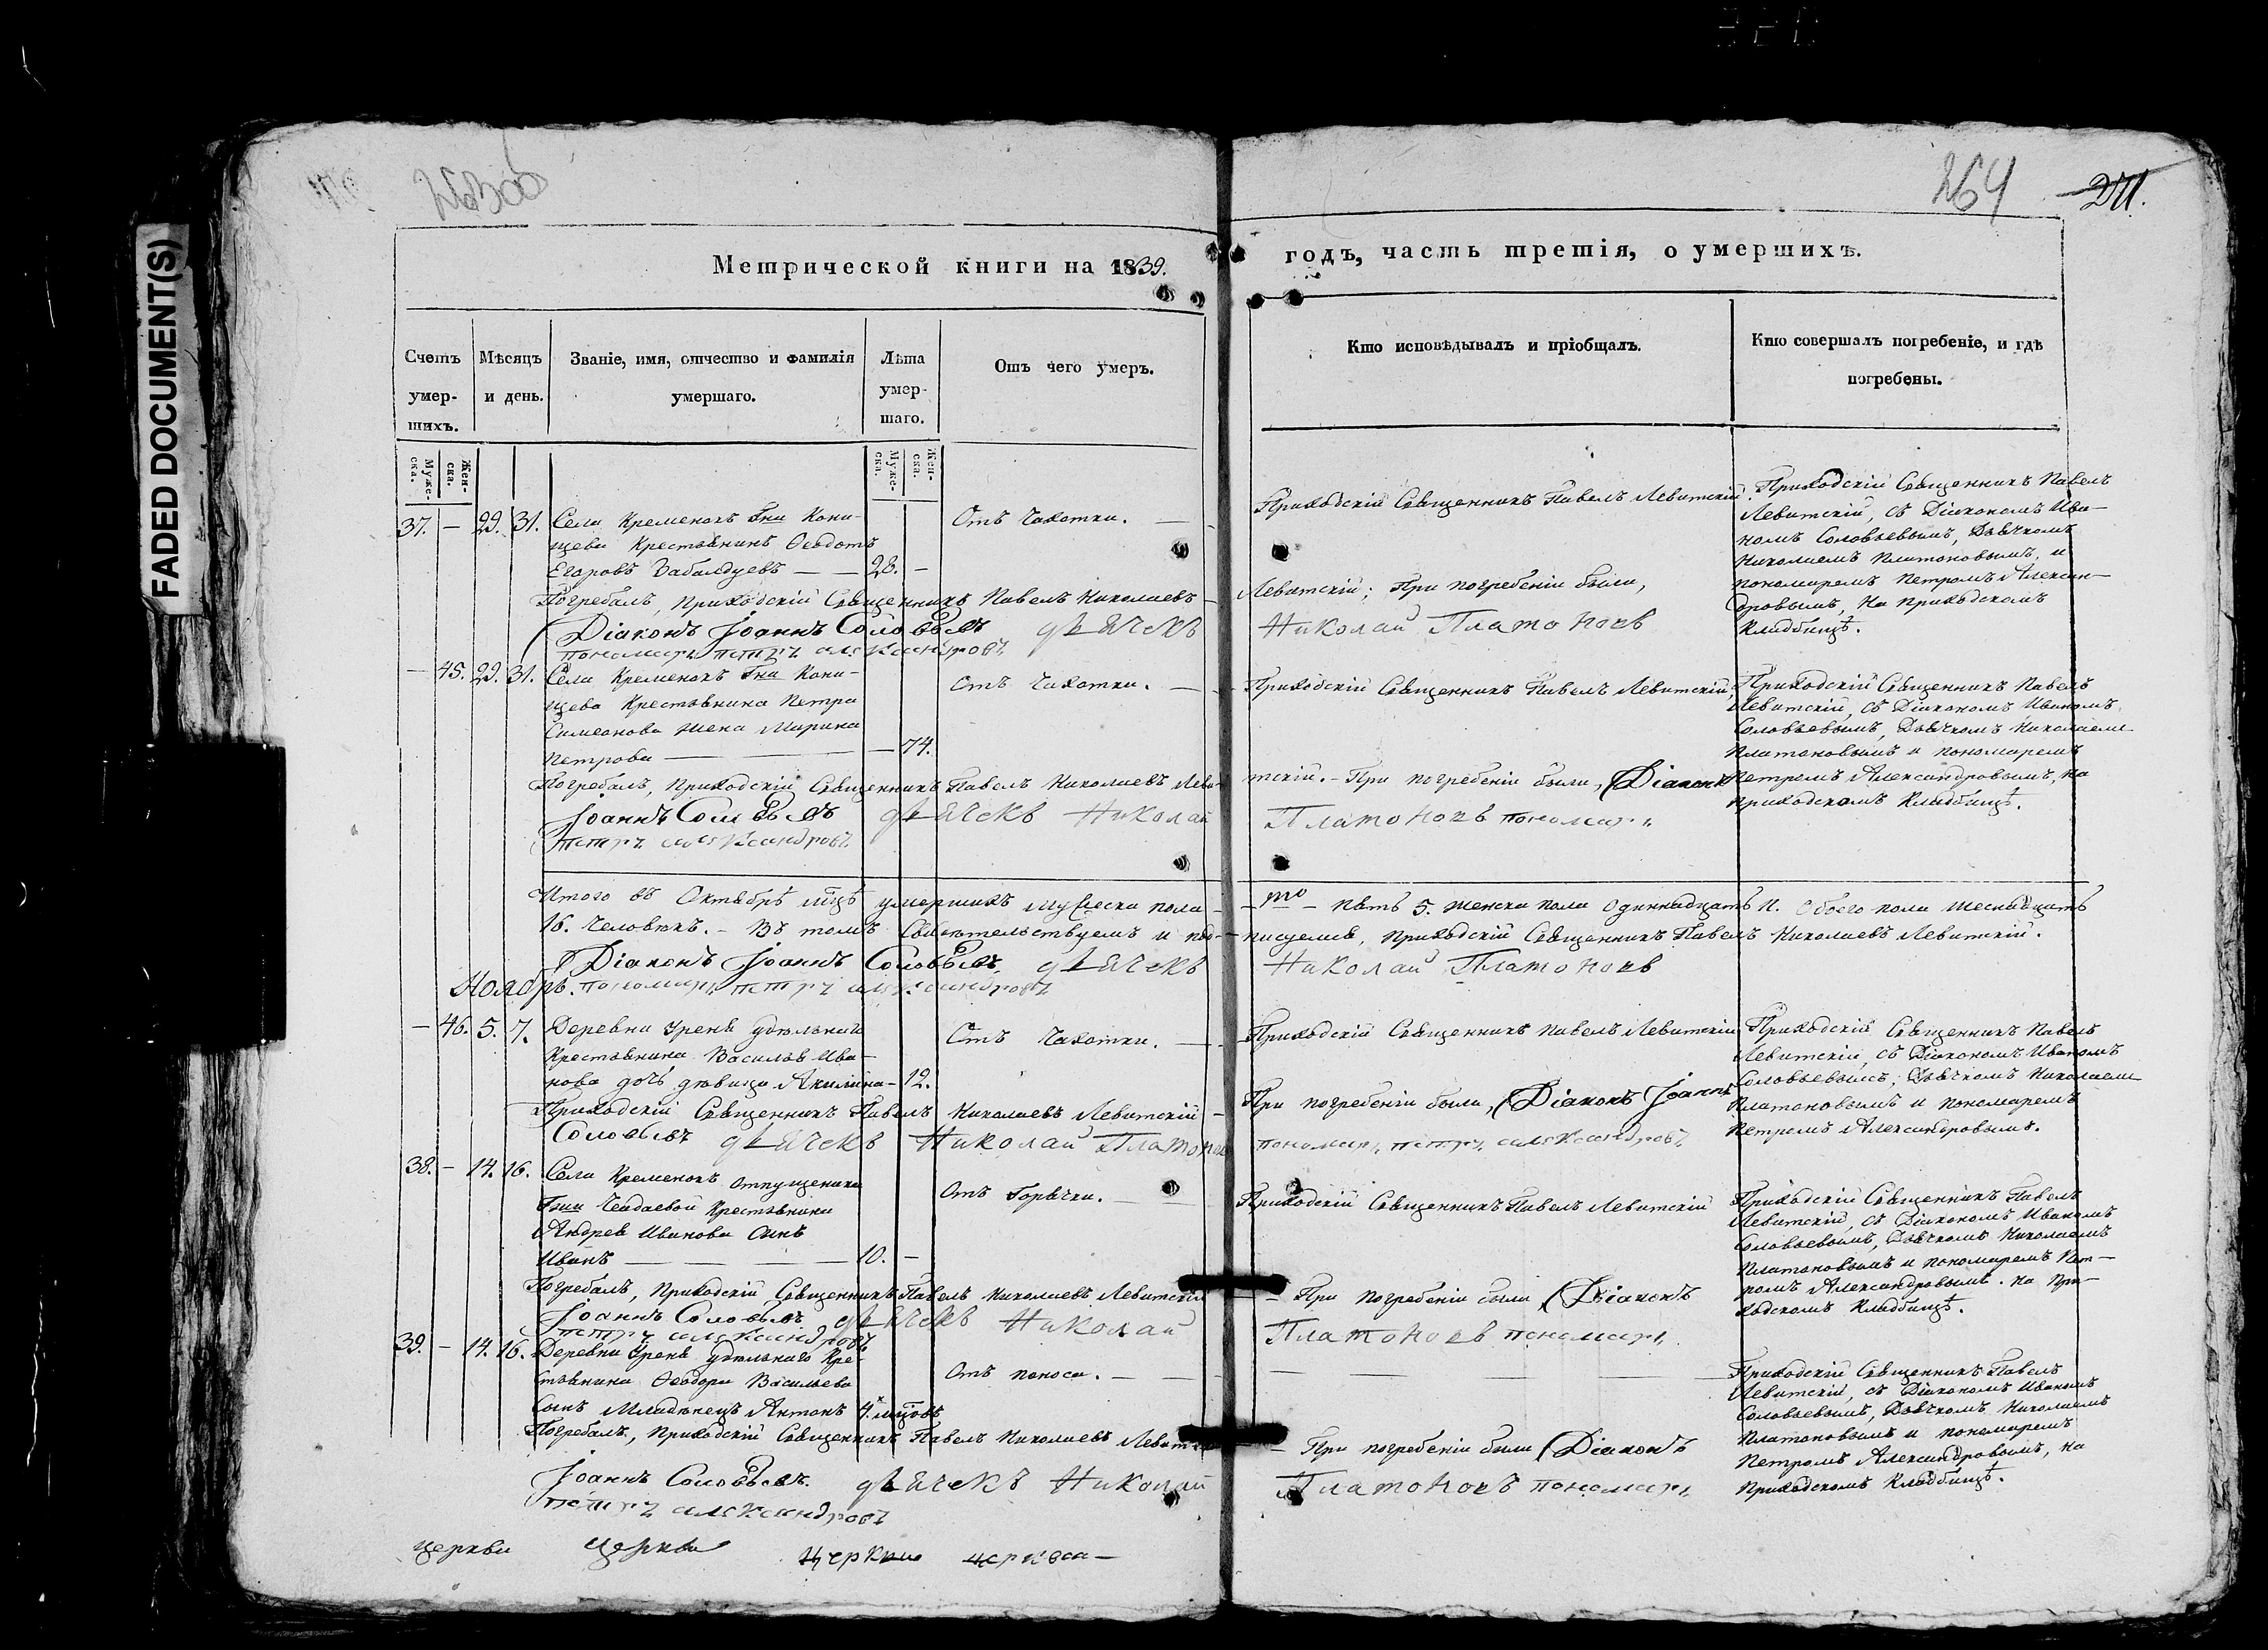 FADED DOCUMENT(S)
263об
264 271.
Метрической книги на 1839. годъ, часть третія, о умершихъ.
Счетъ умершихъ.
Мѣсяцъ и день.
Званіе, имя, отчество и фамилія умершаго.
Лѣта умершаго.
Отъ чего умеръ.
Кто исповѣдывалъ и пріобщалъ.
Кто совершалъ погребеніе, и гдѣ погребены.
Мужеска.
Женска.
Мужеска.
Женска.
37. — 29. 31. Села Кременокъ Гни Кони-
щева Крестьянинъ Ѳеодотъ
Егоровъ Забалдуевъ — — 28. —
Отъ Чахотки. —
Приходскій Священникъ Павелъ Левитскій.
Приходскій Священникъ Павелъ
Левитскій, съ Діакономъ Ива-
номъ Соловьевымъ, Дьячкомъ
Николаемъ Платоновымъ, и
пономаремъ Петромъ Алексан-
дровымъ, На приходскомъ
Кладбищѣ.
Погребалъ, Приходскій Священникъ Павелъ Николаевъ Левитскій; При погребеніи были,
Діаконъ Іоаннъ Соловьевъ дьячекъ Николай Платоновъ
пономарь петръ александровъ
— 45. 29. 31. Села Кременокъ Гни Кони-
щева Крестьянина Петра
Симеонова жена Марина
Петрова — — 74.
Отъ Чахотки. —
Приходскій Священникъ Павелъ Левитскій,
Приходскій Священникъ Павелъ
Левитскій, съ Діакономъ Иваномъ
Соловьевымъ, Дьячкомъ Николаемъ
Платоновымъ и пономаремъ
Петромъ Александровымъ, на
приходскомъ Кладбищѣ.
Погребалъ, Приходскій Священникъ Павелъ Николаевъ Леви-
тскій. — При погребеніи были, Діаконъ
Іоаннъ Соловьевъ дьячекъ Николай Платоновъ пономарь
петръ александровъ
Итого въ Октябрѣ мцѣ умершихъ мужеска пола — то — пять 5. женска пола одиннадцать 11. Обоего пола шеснадцать
16. Человѣкъ. — Въ томъ Свидѣтельствуемъ и под-
писуемся, Приходскій Священникъ Павелъ Николаевъ Левитскій.
Діаконъ Іоаннъ Соловьевъ, дьячекъ Николай Платоновъ
Ноябрь. пономарь петръ александровъ
— 46. 5. 7. Деревни Урень удѣльнаго
Крестьянина Василья Ива-
нова дочь дѣвица Акилина — 12.
Отъ Чахотки. —
Приходскій Священникъ Павелъ Левитскій
Приходскій Священникъ Павелъ
Левитскій, съ Діакономъ Иваномъ
Соловьевымъ, Дьячкомъ Николаемъ
Платоновымъ и пономаремъ
Петромъ Александровымъ.
Приходскій Священникъ Павелъ Николаевъ Левитскій —
При погребеніи были, Діаконъ Іоаннъ
Соловьевъ дьячекъ Николай Платоновъ
пономарь петръ александровъ
38. — 14. 16. Села Кременокъ отпущеника
Гжи Чаадаевой Крестьянина
Андрея Иванова сынъ
Иванъ — — — 10. —
Отъ Горячки. —
Приходскій Священникъ Павелъ Левитскій
Приходскій Священникъ Павелъ
Левитскій, съ Діакономъ Иваномъ
Соловьевымъ, Дьячкомъ Николаемъ
Платоновымъ и пономаремъ Пет-
ромъ Александровымъ. на при-
ходскомъ Кладбищѣ.
Погребалъ, Приходскій Священникъ Павелъ Николаевъ Левитскій
— При погребеніи были Діаконъ
Іоаннъ Соловьевъ дьячекъ Николай Платоновъ пономарь
петръ александровъ
39. — 14. 16. Деревни Урень удѣльнаго Кре-
стьянина Ѳеодора Васильева
сынъ Младенецъ Антонъ 4. мцовъ
Отъ поноса. —
Приходскій Священникъ Павелъ
Левитскій, съ Діакономъ Иваномъ
Соловьевымъ, Дьячкомъ Николаемъ
Платоновымъ и пономаремъ
Петромъ Александровымъ, на
приходскомъ Кладбищѣ.
Погребалъ, Приходскій Священникъ Павелъ Николаевъ Левитскій
— При погребеніи были Діаконъ
Іоаннъ Соловьевъ. дьячекъ Николай Платоновъ пономарь
петръ александровъ
церкви церкви церкви церкви —